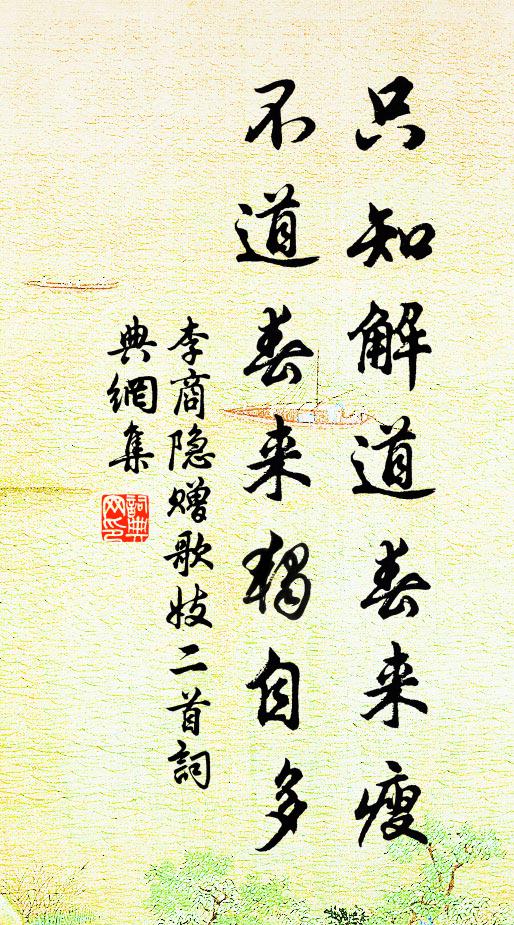 只知解道春来瘦
不道春来独自多
李商隐赠歌妓二首詞
典網集
詞典网印